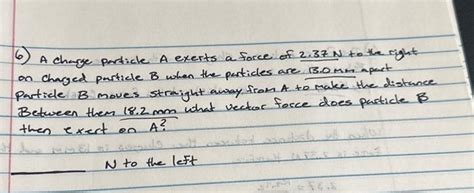 6) A charge particle A exerts a force of 2.37 N to the right
on charged particle B when the particles are 13.0 mm apart
Particle B moves straight away from A to make the distance
Between them 18.2 mm what vector force does particle B
then exert on A?
N to the left